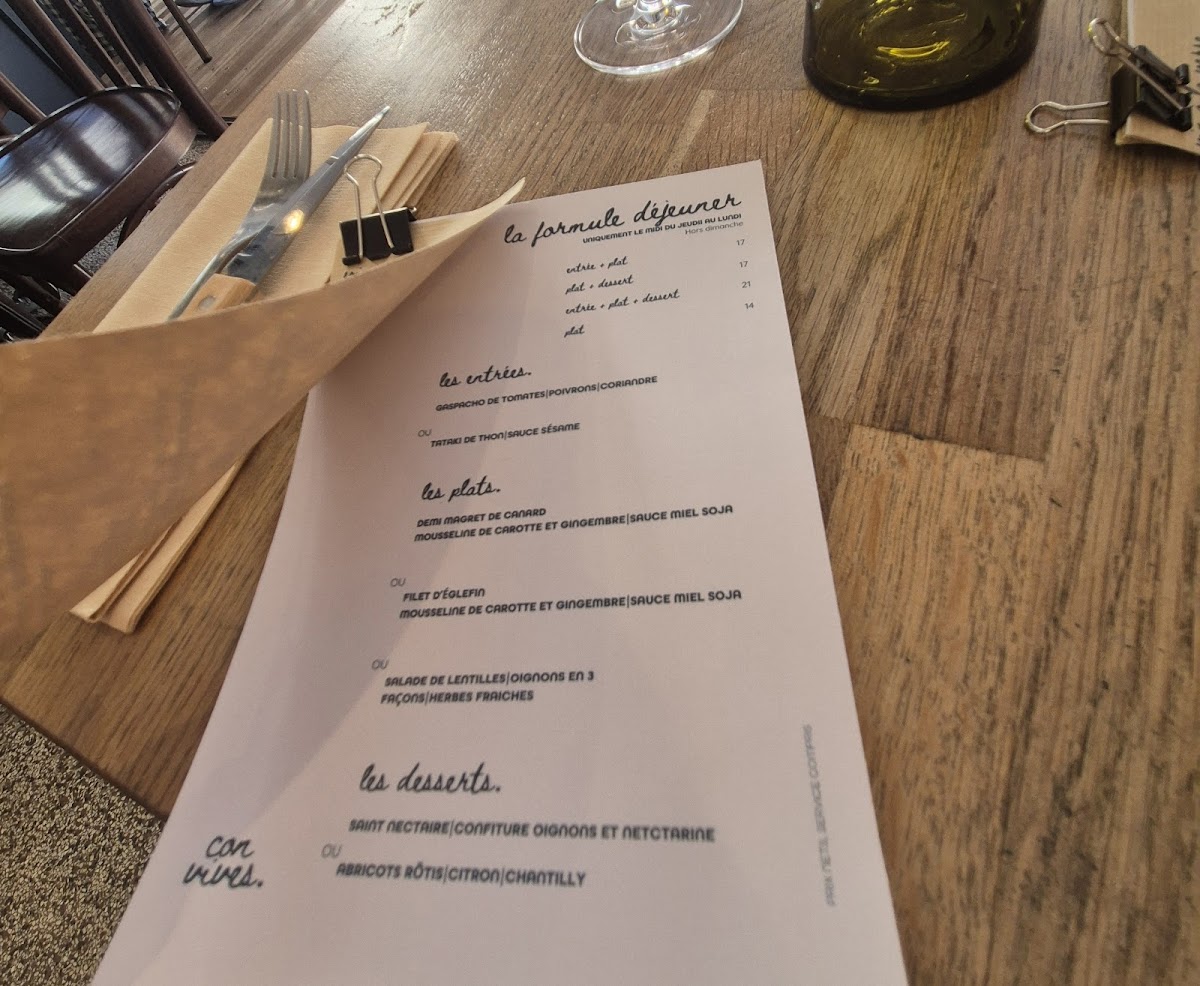 la formule déjeuner
UNIQUEMENT LE MIDI DU JEUDII AU LUNDI
Hors dimanche
entrée + plat 17
plat + dessert 17
entrée + plat + dessert 21
plat 14
les entrées.
GASPACHO DE TOMATES|POIVRONS|CORIANDRE
OU
TATAKI DE THON|SAUCE SÉSAME
les plats.
DEMI MAGRET DE CANARD
MOUSSELINE DE CAROTTE ET GINGEMBRE|SAUCE MIEL SOJA
OU
FILET D'ÉGLEFIN
MOUSSELINE DE CAROTTE ET GINGEMBRE|SAUCE MIEL SOJA
OU
SALADE DE LENTILLES|OIGNONS EN 3
FAÇONS|HERBES FRAICHES
les desserts.
SAINT NECTAIRE|CONFITURE OIGNONS ET NETCTARINE
OU
ABRICOTS RÔTIS|CITRON|CHANTILLY
con
vives.
PRIX NETS, SERVICE COMPRIS